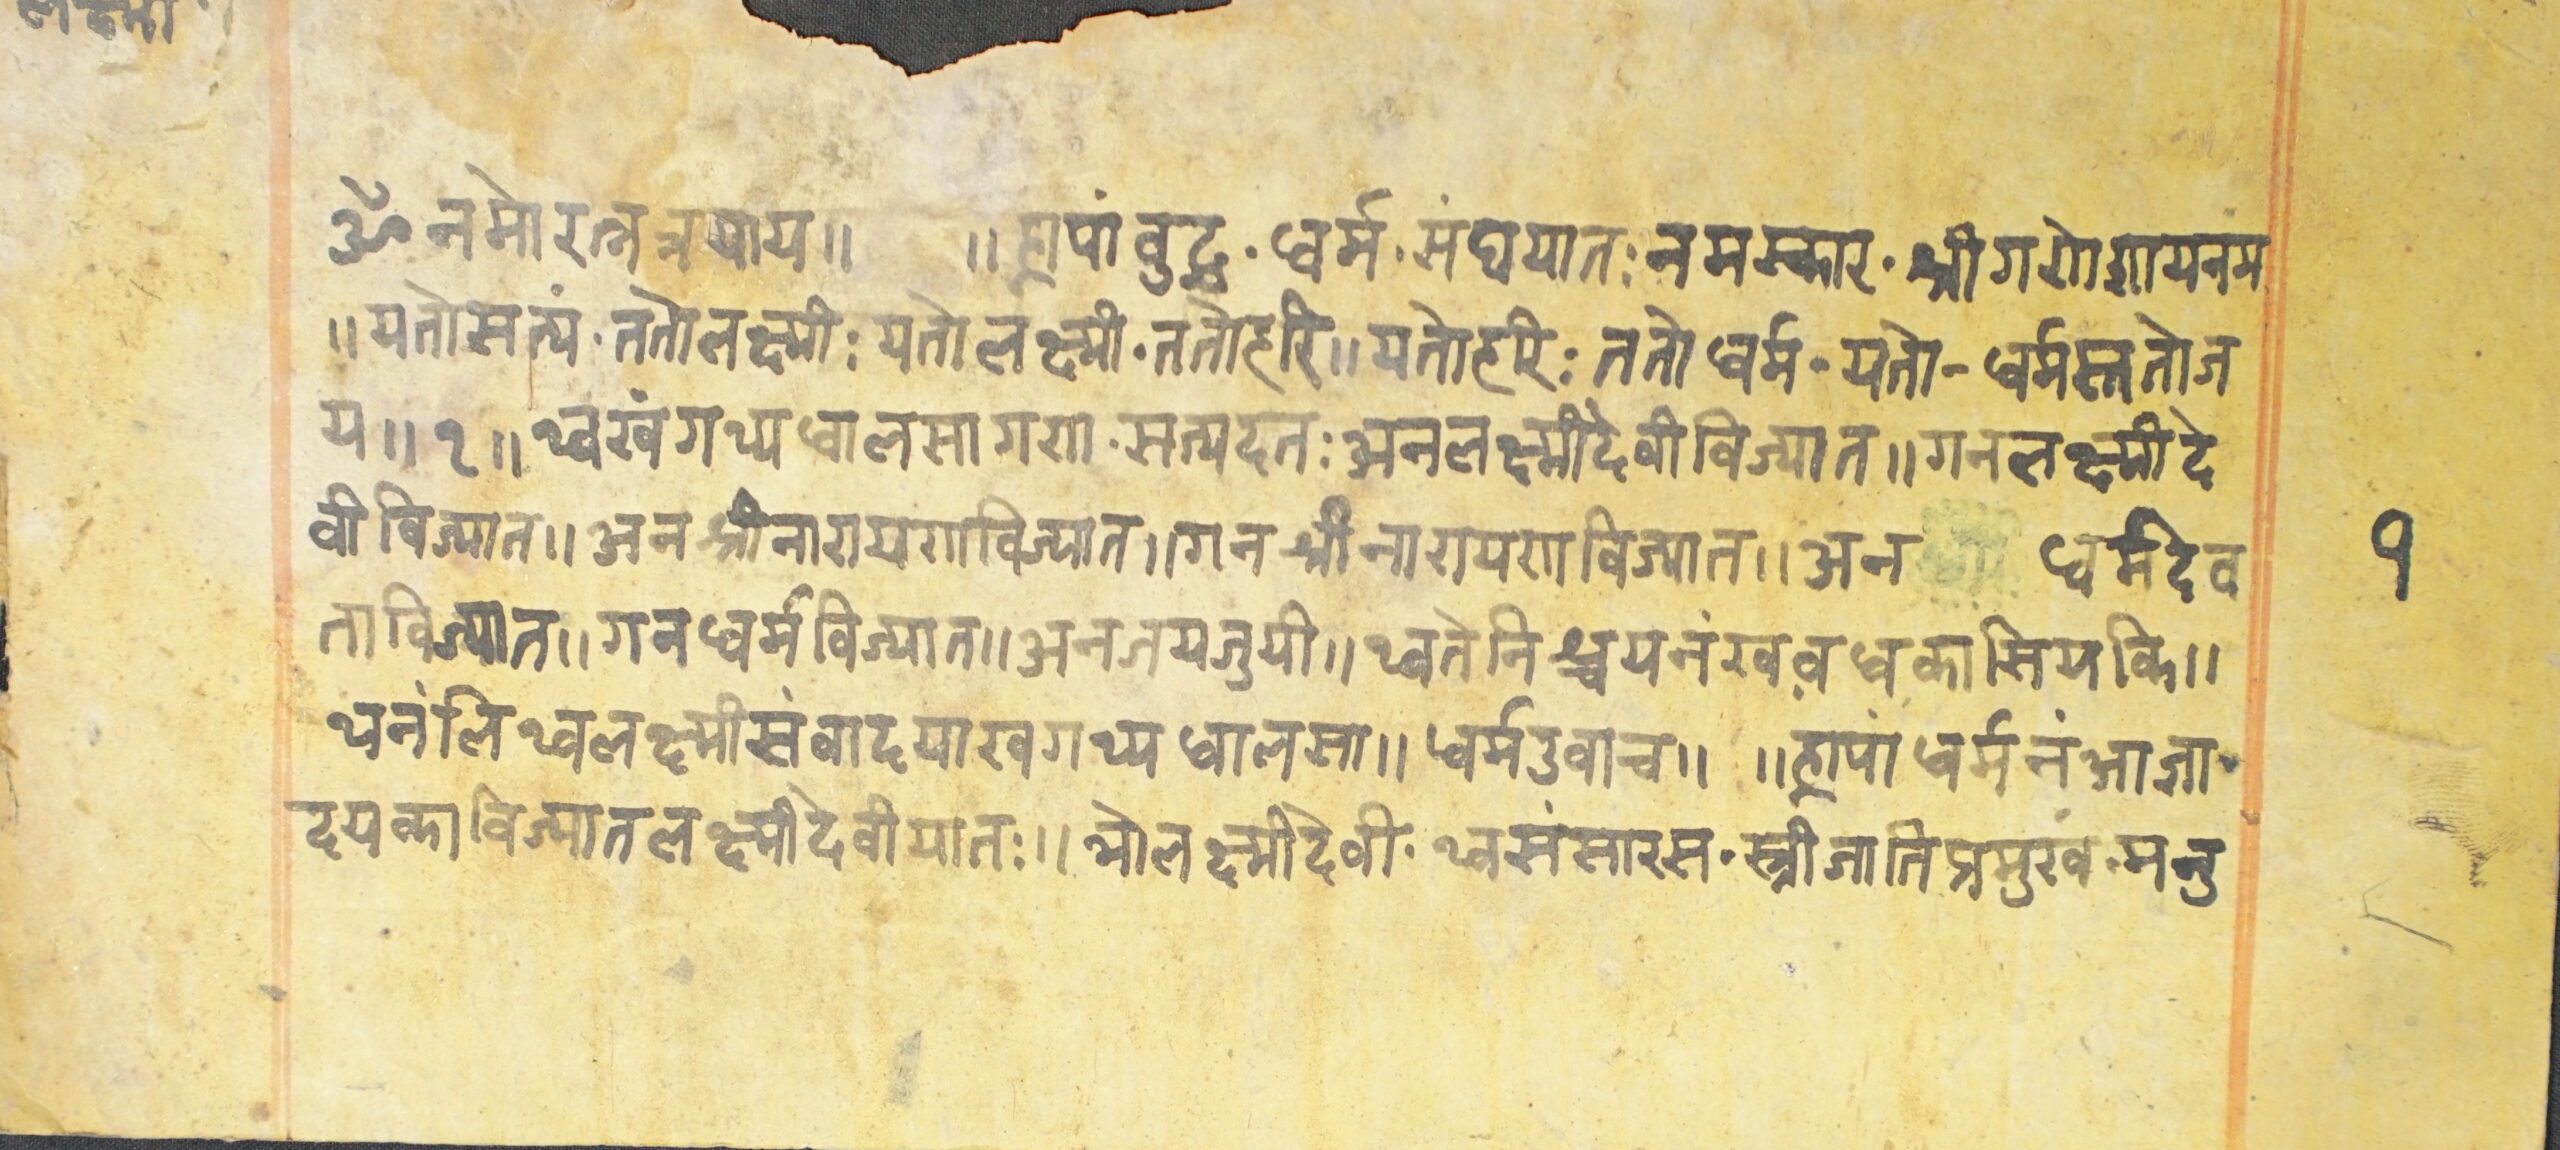 लक्ष्मी
ॐ नमो रत्नत्रयाय॥ ॥ह्नापां बुद्ध · धर्म · संघयात: नमस्कार · श्री गणेशायनम
॥यतो सत्यं · ततो लक्ष्मी: यतो लक्ष्मी · ततो हरि॥ यतो हरि: ततो धर्म · यतो - धर्मस्ततो ज
य॥ १॥ थ्वखं गथ्य धालसा गणा · सत्य दत: अन लक्ष्मीदेवी विज्यात॥ गन लक्ष्मीदे
वी विज्यात॥ अन श्रीनारायण विज्यात॥ गन श्रीनारायण विज्यात॥ अन धर्मदेव
ता विज्यात॥ गन धर्म विज्यात॥ अन जय जुयी॥ थ्वते निश्चयनं खव धका सियकि॥
थनंलि थ्व लक्ष्मीसंवादया ख गथ्य धालसा॥ धर्म उवाच॥ ॥ह्नापां धर्मनं आज्ञा ·
दयका विज्यात लक्ष्मीदेवीयात:॥ भो लक्ष्मीदेवी · थ्व संसारस · स्त्रीजाति प्रमुखं · मनु
१